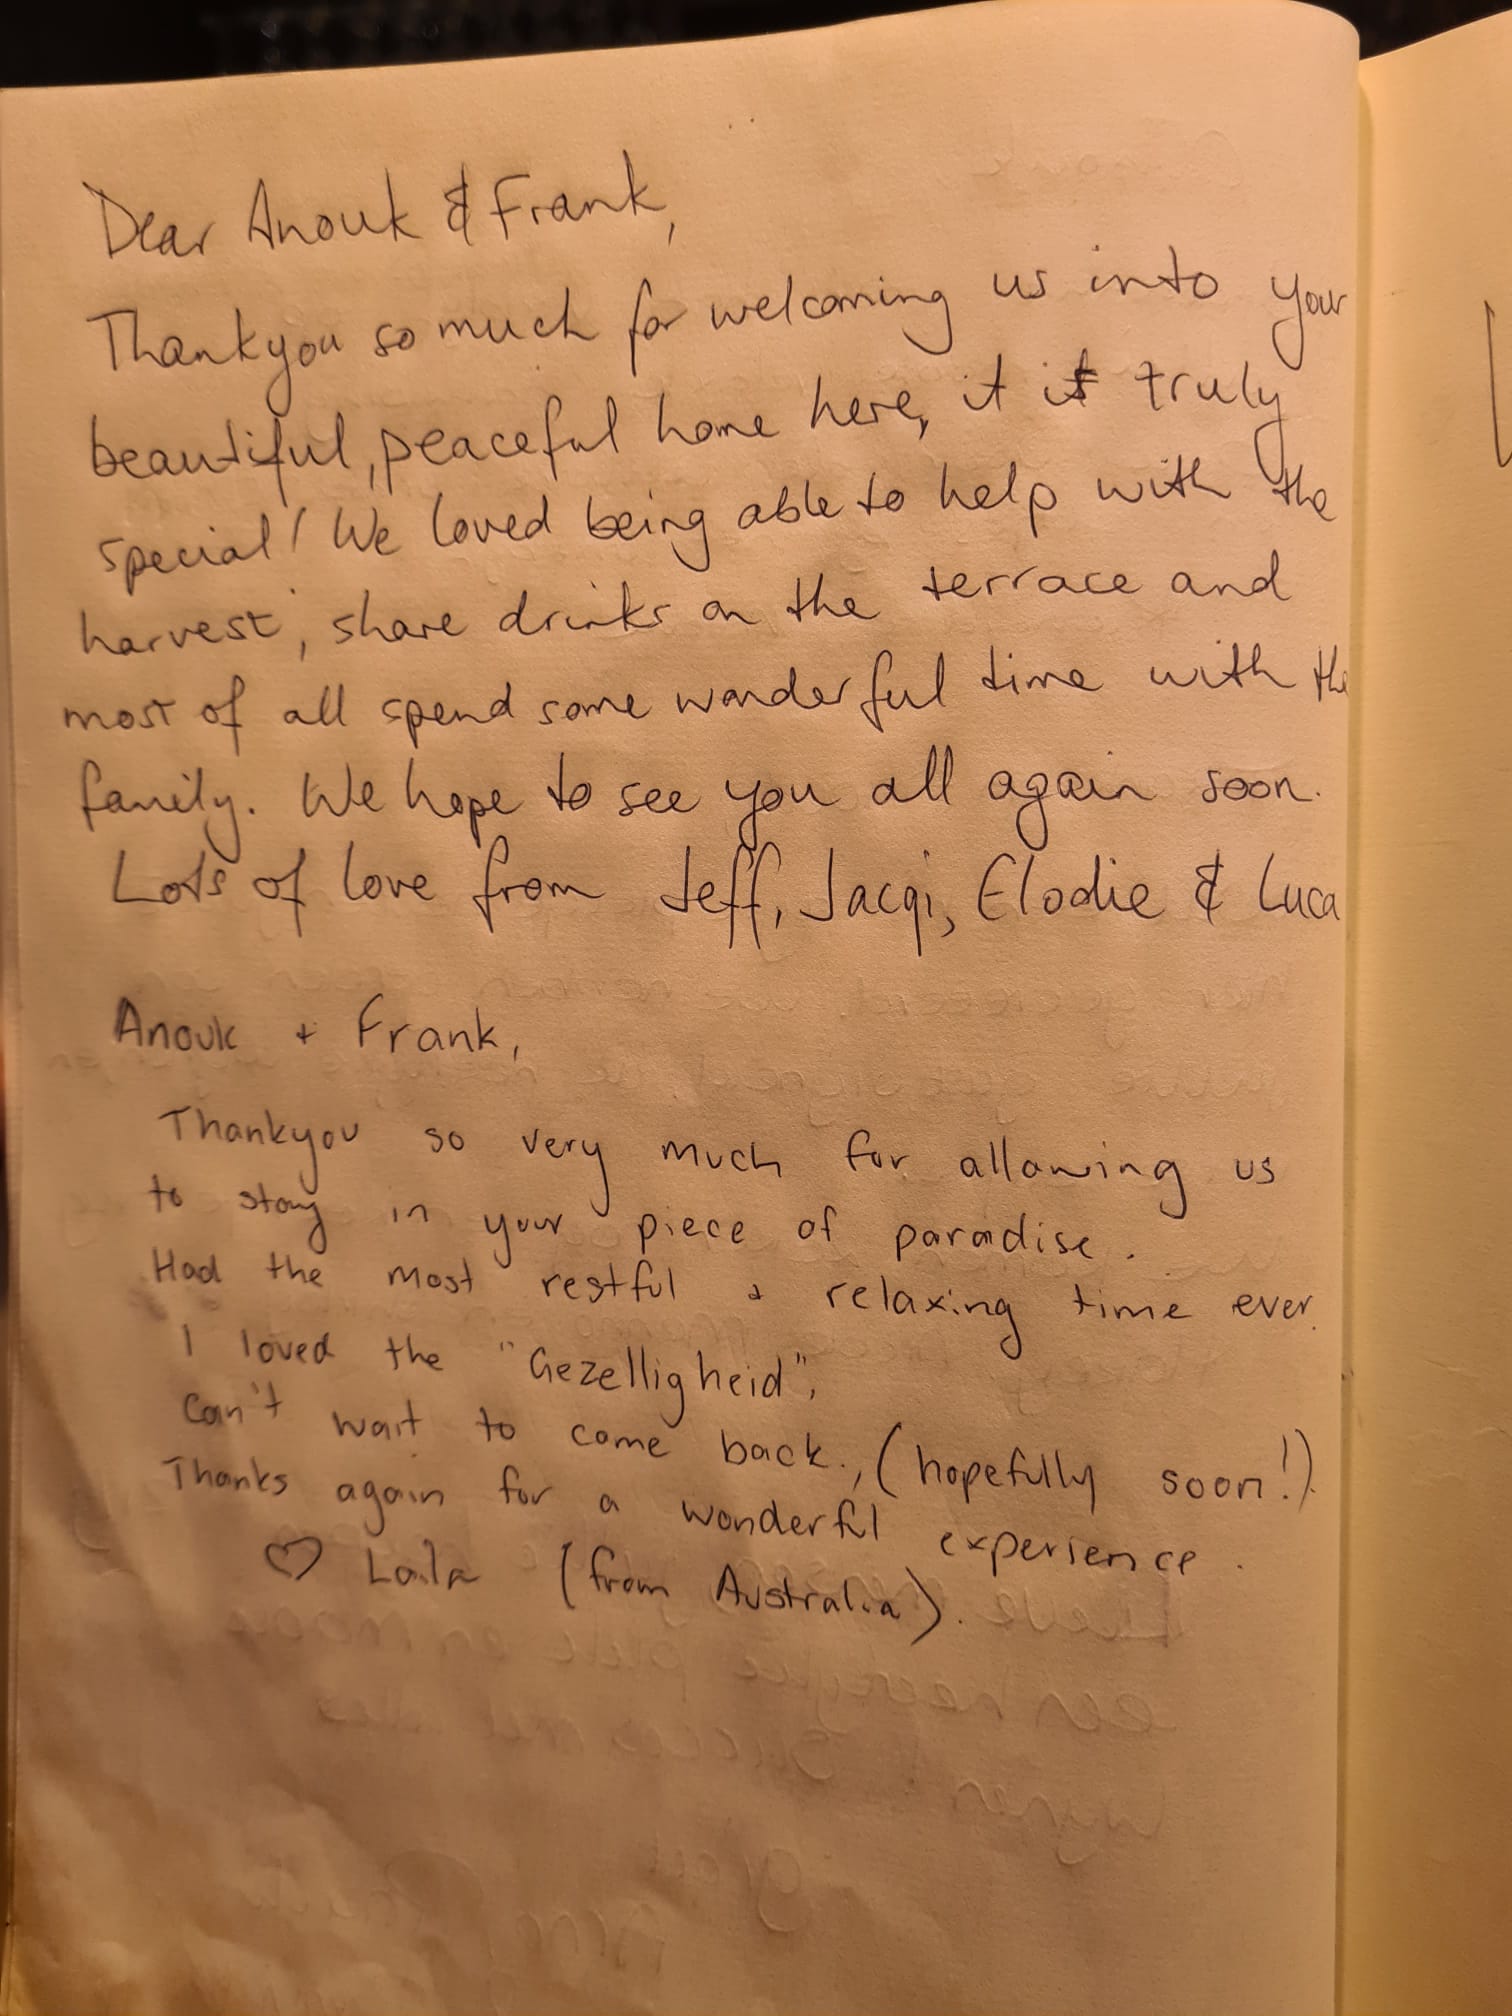 Dear Anouk & Frank,
Thankyou so much for welcoming us into your
beautiful, peaceful home here, it is truly
special! We loved being able to help with the
harvest, share drinks on the terrace and
most of all spend some wonderful time with the
family. We hope to see you all again soon.
Lots of love from Jeff, Jacqi, Elodie & Luca
Anouk + Frank,
Thankyou so very much for allowing us
to stay in your piece of paradise.
Had the most restful + relaxing time ever.
I loved the "Gezelligheid",
Can't wait to come back., (hopefully soon!).
Thanks again for a wonderful experience.
♡ Laila (from Australia).